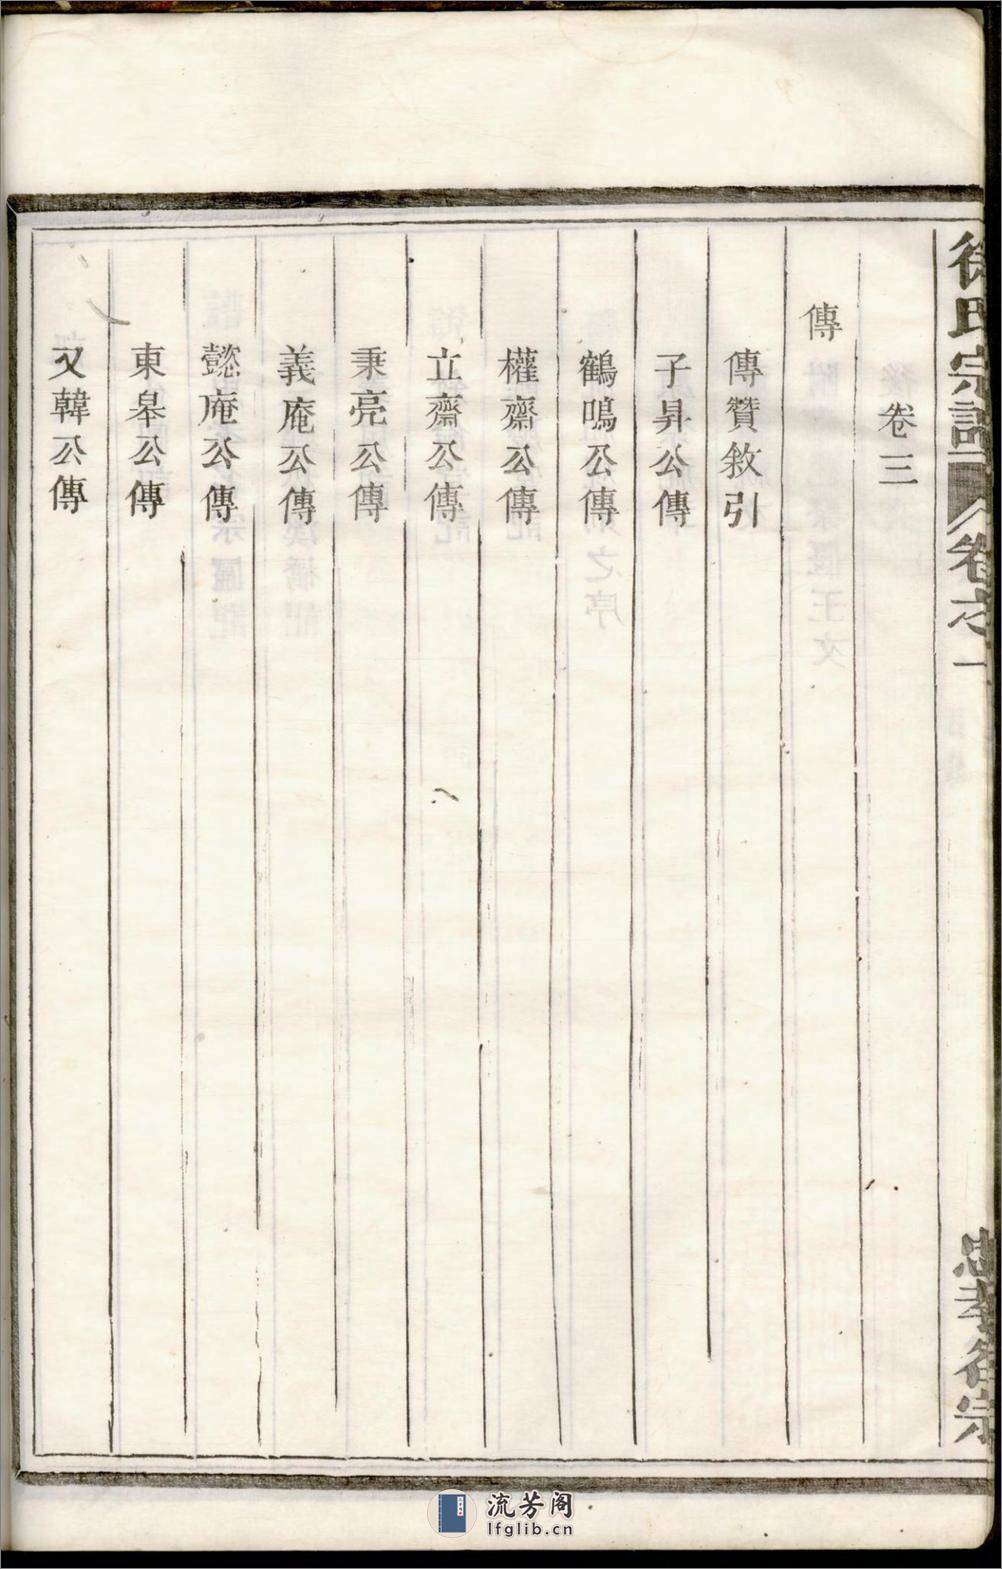 徐氏宗譜 卷之一
忠孝徐宗
卷三
傳
傳贊敘引
子昇公傳
鶴鳴公傳
權齋公傳
立齋公傳
秉亮公傳
義庵公傳
懿庵公傳
東皋公傳
又韓公傳
流芳阁
lfglib.cn